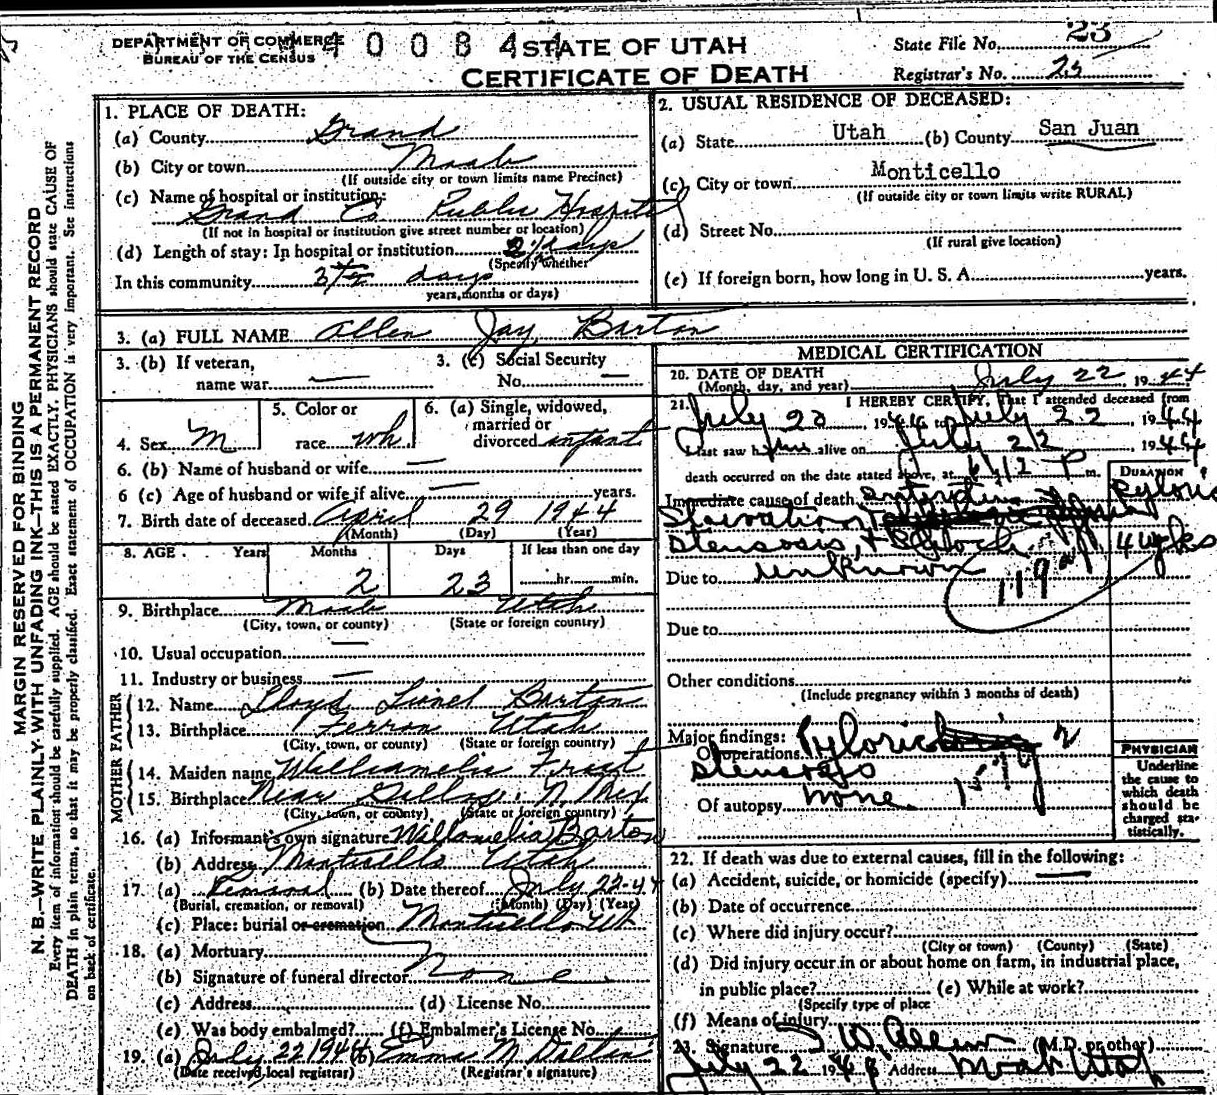 DEPARTMENT OF COMMERCE
BUREAU OF THE CENSUS
4400841
STATE OF UTAH
CERTIFICATE OF DEATH
State File No. 23
Registrar's No. 25
MARGIN RESERVED FOR BINDING
N. B.—WRITE PLAINLY, WITH UNFADING INK—THIS IS A PERMANENT RECORD
Every item of information should be carefully supplied. AGE should be stated EXACTLY. PHYSICIANS should state CAUSE OF
DEATH in plain terms, so that it may be properly classified. Exact statement of OCCUPATION is very important. See instructions
on back of certificate.
1. PLACE OF DEATH:
(a) County Grand
(b) City or town Moab
(If outside city or town limits name Precinct)
(c) Name of hospital or institution:
Grand Co Public Hospital
(If not in hospital or institution give street number or location)
(d) Length of stay: In hospital or institution 2½ days
(Specify whether
In this community days
years, months or days)
2. USUAL RESIDENCE OF DECEASED:
(a) State Utah (b) County San Juan
(c) City or town Monticello
(If outside city or town limits write RURAL)
(d) Street No.
(If rural give location)
(e) If foreign born, how long in U. S. A. years.
3. (a) FULL NAME Allen Jay Barton
3. (b) If veteran,
name war —
3. (c) Social Security
No. —
4. Sex M
5. Color or
race wh
6. (a) Single, widowed,
married or
divorced infant
6. (b) Name of husband or wife —
6 (c) Age of husband or wife if alive — years.
7. Birth date of deceased April 29 1944
(Month) (Day) (Year)
8. AGE Years Months Days If less than one day
2 23 hr. min.
9. Birthplace Moab Utah
(City, town, or county) (State or foreign country)
10. Usual occupation —
11. Industry or business —
FATHER
12. Name Lloyd Lionel Barton
13. Birthplace Ferron Utah
(City, town, or county) (State or foreign country)
MOTHER
14. Maiden name Williamelia Frost
15. Birthplace Near Gallup, N. Mex
(City, town, or county) (State or foreign country)
16. (a) Informant's own signature Willamelia Barton
(b) Address Monticello Utah
17. (a) Removal (b) Date thereof July 22-44
(Burial, cremation, or removal) (Month) (Day) (Year)
(c) Place: burial or cremation Monticello Ut
18. (a) Mortuary
(b) Signature of funeral director None
(c) Address (d) License No.
(e) Was body embalmed? (f) Embalmer's License No.
19. (a) July 22 1944 (b) Emma M Dalton
(Date received local registrar) (Registrar's signature)
MEDICAL CERTIFICATION
20. DATE OF DEATH
(Month, day, and year) July 22, 1944
21. I HEREBY CERTIFY, That I attended deceased from
July 20, 1944 to July 22, 1944
I last saw him alive on July 22 1944
death occurred on the date stated above, at 6:12 P m.
DURATION
Immediate cause of death
Starvation Pyloric
Stensosis, 4 wks
Due to unknown
119 a
Due to
Other conditions
(Include pregnancy within 3 months of death)
Major findings:
Of operations Pyloric
Stensosis
Of autopsy none
PHYSICIAN
Underline
the cause to
which death
should be
charged sta-
tistically.
22. If death was due to external causes, fill in the following:
(a) Accident, suicide, or homicide (specify) —
(b) Date of occurrence
(c) Where did injury occur?
(City or town) (County) (State)
(d) Did injury occur in or about home on farm, in industrial place,
in public place? (e) While at work?
(Specify type of place
(f) Means of injury
23. Signature I W Allen (M.D. or other)
July 22 194 Address Moab Utah